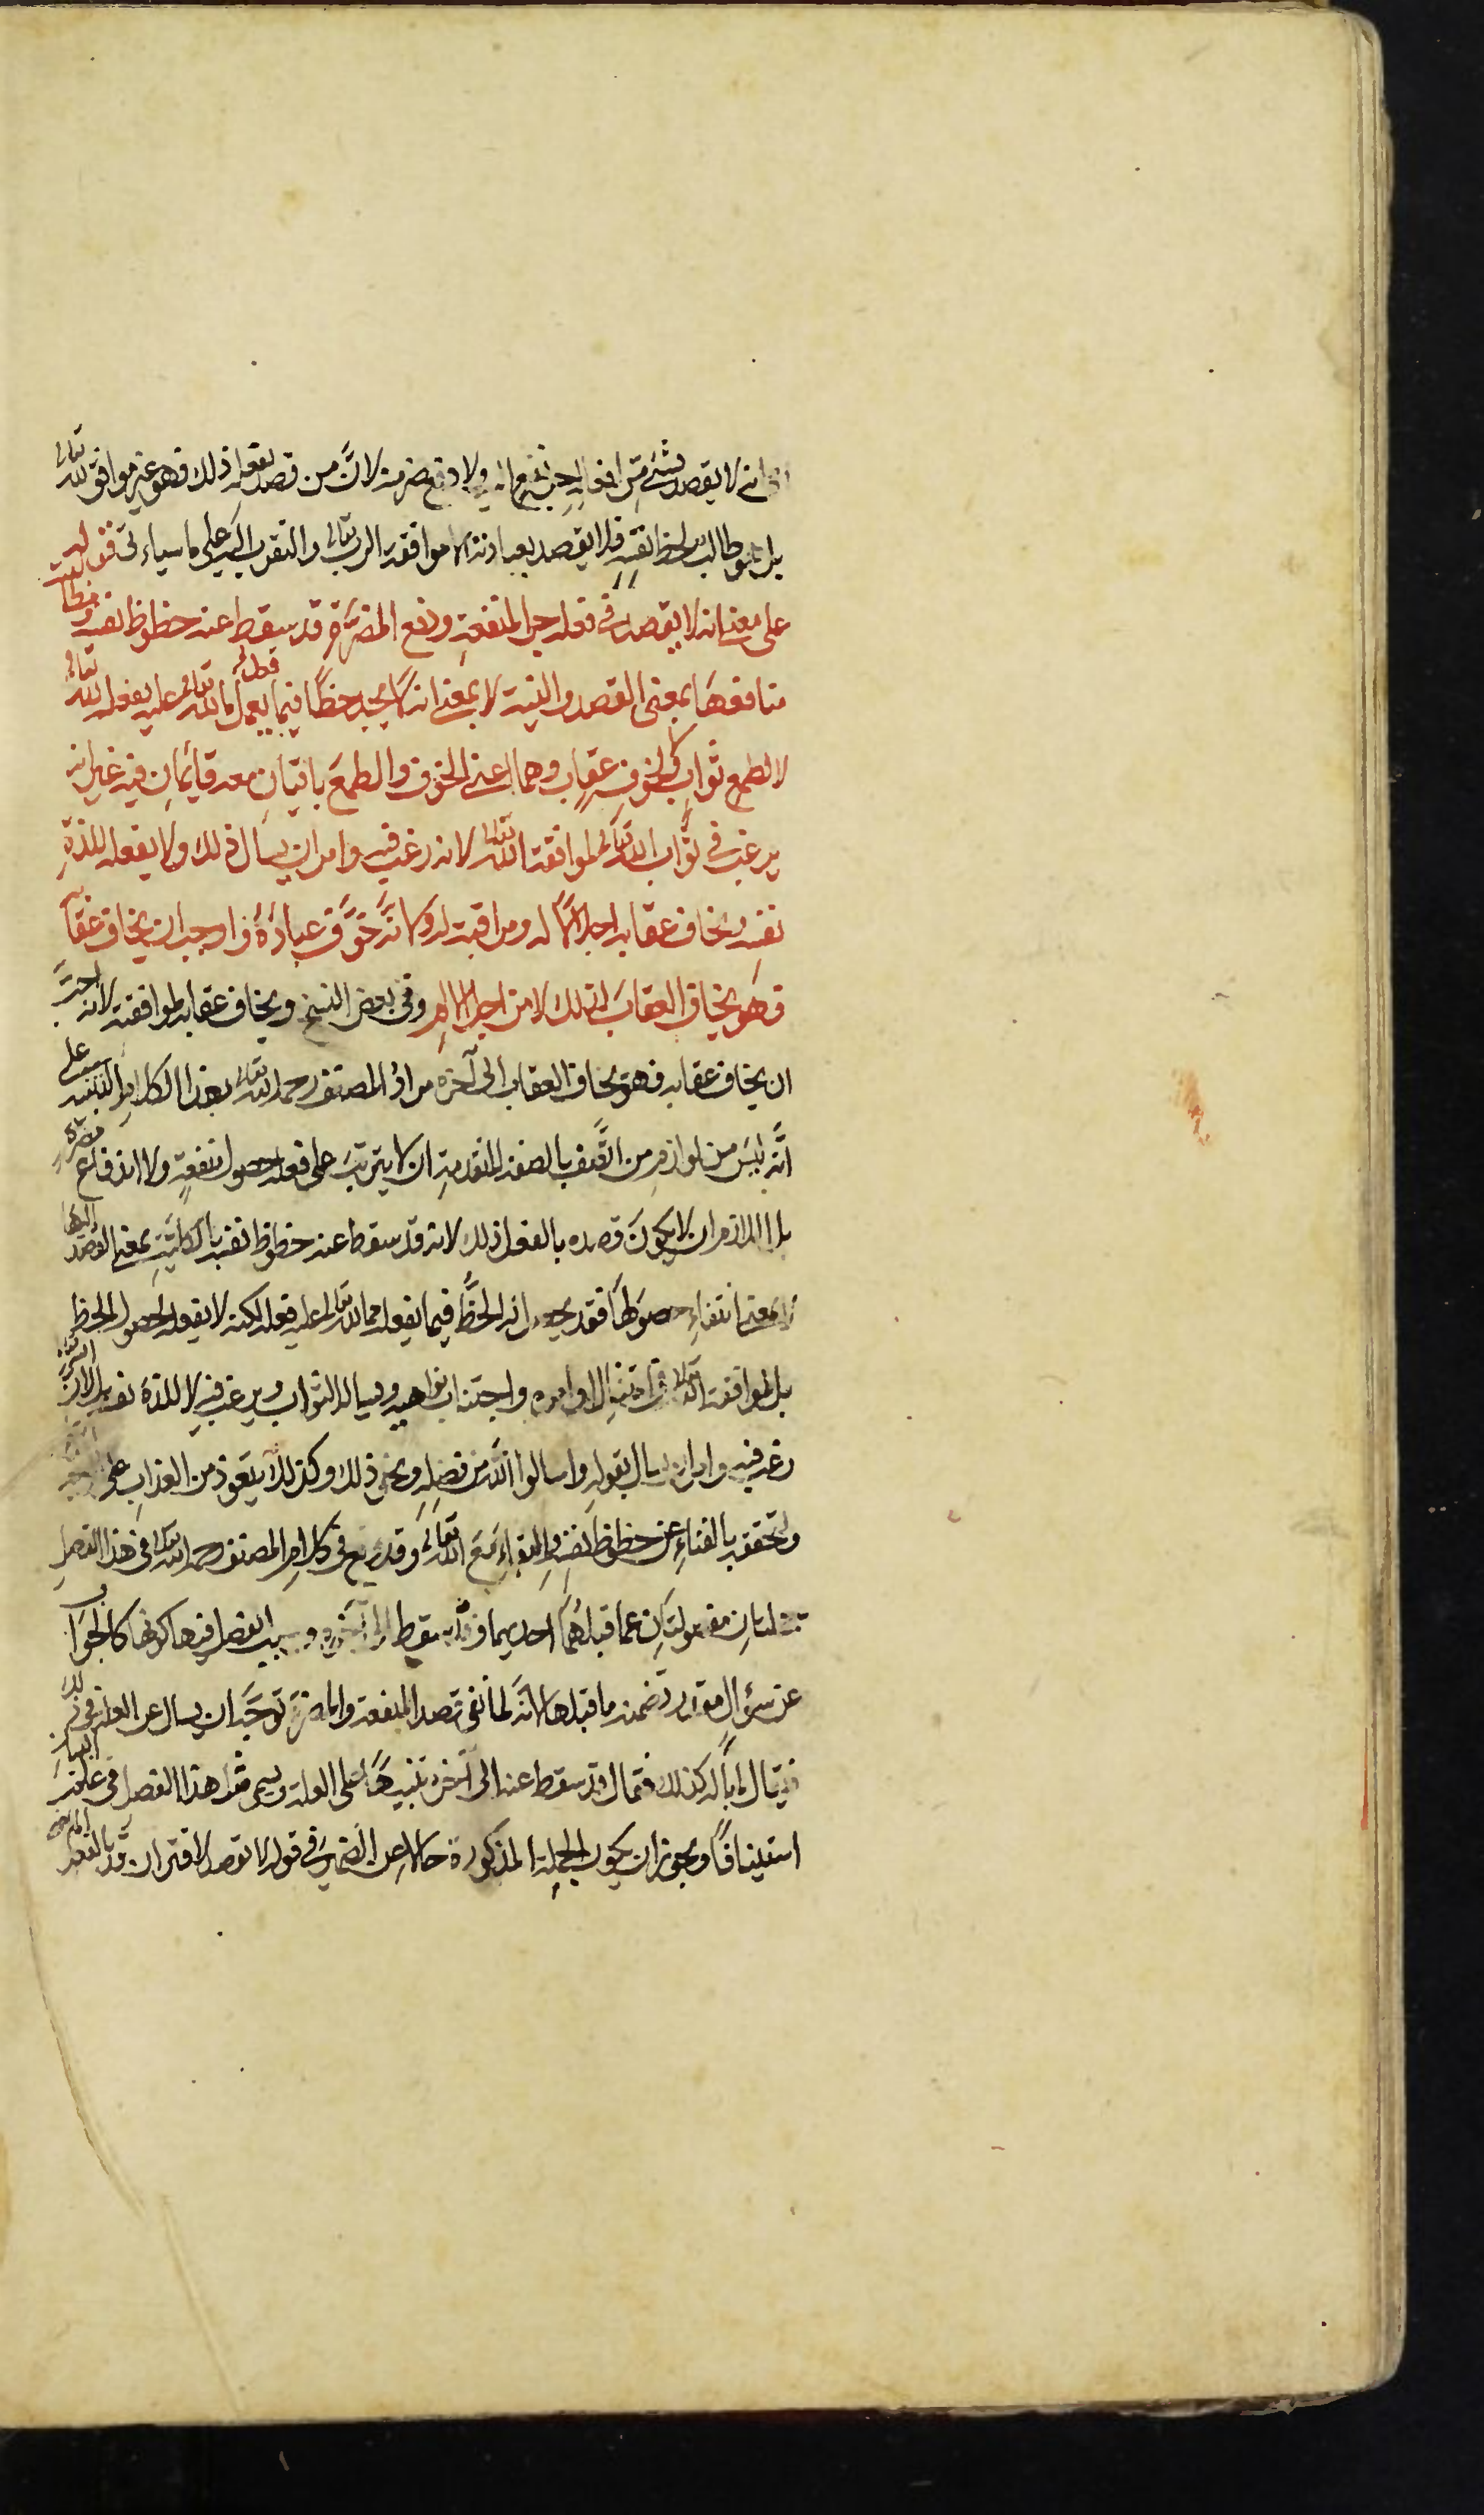 انه لا يقصد بشئ من افعاله جر نفع اليه ولا دفع ضر منه لانَّ من قصد بفعله ذلك فهو غير موافق لله تعالى
بل هو طالب لحظ نفسه فلا يقصد بعبادته الا موافقة الرب تعالى والتقرب اليه على ما سياءتى فقوله
على معنى انه لا يقصد في فعله جر المنفعة ودفع المضرّة قد سقط عنه حظوظ نفسه ومطالبة
منافعها بمعنى القصد والنية لا بمعنى انه لا يجد حظًا فيما يعمل مما لله تعالى عليه فعله يفعله لله تعالى
لا لطمع ثواب ولا لخوف عقاب وهما اعنى الخوف والطمع باقيان معه قائمان فيه غير انه
يرغب في ثواب الله تعالى لموافقة الله تعالى لانه رغب فيه وامر ان يسال ذلك ولا يفعله للذة
نفسه ويخاف عقابه اجلالًا له وموافقة له لانه خوّف عباده فاوجب ان يخاف عقابه
فهو يخاف العقاب لذلك لا من اجل الالم وفي بعض النسخ ويخاف عقابه لموافقته لانه احب
ان يخاف عقابه فهو يخاف العقاب الى آخره مراد المصنف رحمه الله تعالى بهذا الكلام التنبيه على
انَّه ليس من لوازم من اتَّصف بالصفة المتقدمة ان لا يترتب على فعله حصول منفعة ولا اندفاع مضرة
بل اللازم ان لا يكون قصده بالفعل ذلك لانه قد سقط عنه حظوظ نفسه بالكلية بمعنى القصد اليها
لا بمعنى انتفاء حصولها فقد يحصل له الحظّ فيما يفعله مما لله تعالى عليه فعله لكنه لا يفعله لحصول الحظ
بل لموافقة الله تعالى في امتثال اوامره واجتناب نواهيه ويسال الثواب ويرغب فيه لا للذة نفسه بل لان الله تعالى
رغب فيه وامر ان يسال بقوله واسالوا الله من فضله ونحو ذلك وكذلك يتعوذ من العذاب على
ولتحققه بالفناء عن حظوظ نفسه والبقاء مع الله تعالى وقد وقع في كلام المصنف رحمه الله تعالى في هذا الفصل
جملتان مفصولتان عما قبلهما احديهما قد سقط الى آخره وسبب الفصل فيها كونها كالجواب
عن سؤال مقدر تضمنه ما قبلها لانَّه لما نفى قصد المنفعة والمضرة توجَّه ان يسال عن العلة في ذلك
فيقال لم كان كذلك فقال قد سقط عنه الى آخره تنبيهًا على العلة ويسمى مثل هذا الفصل في علم البيان
استينافًا ويجوز ان يكون الجملة المذكورة حالا عن الضمير في قوله لا يقصد لاقتران قد بالفعل الماضى